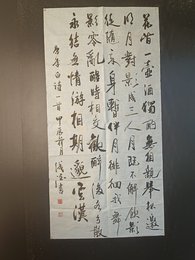 花間一壺酒獨酌無相親舉杯邀
明月對影成三人月既不解飲影
徒隨我身暫伴月徘徊我舞
影零亂醒時相交歡醉後各分散
永結無情游相期邈雲漢
唐李白詩一首甲辰月書